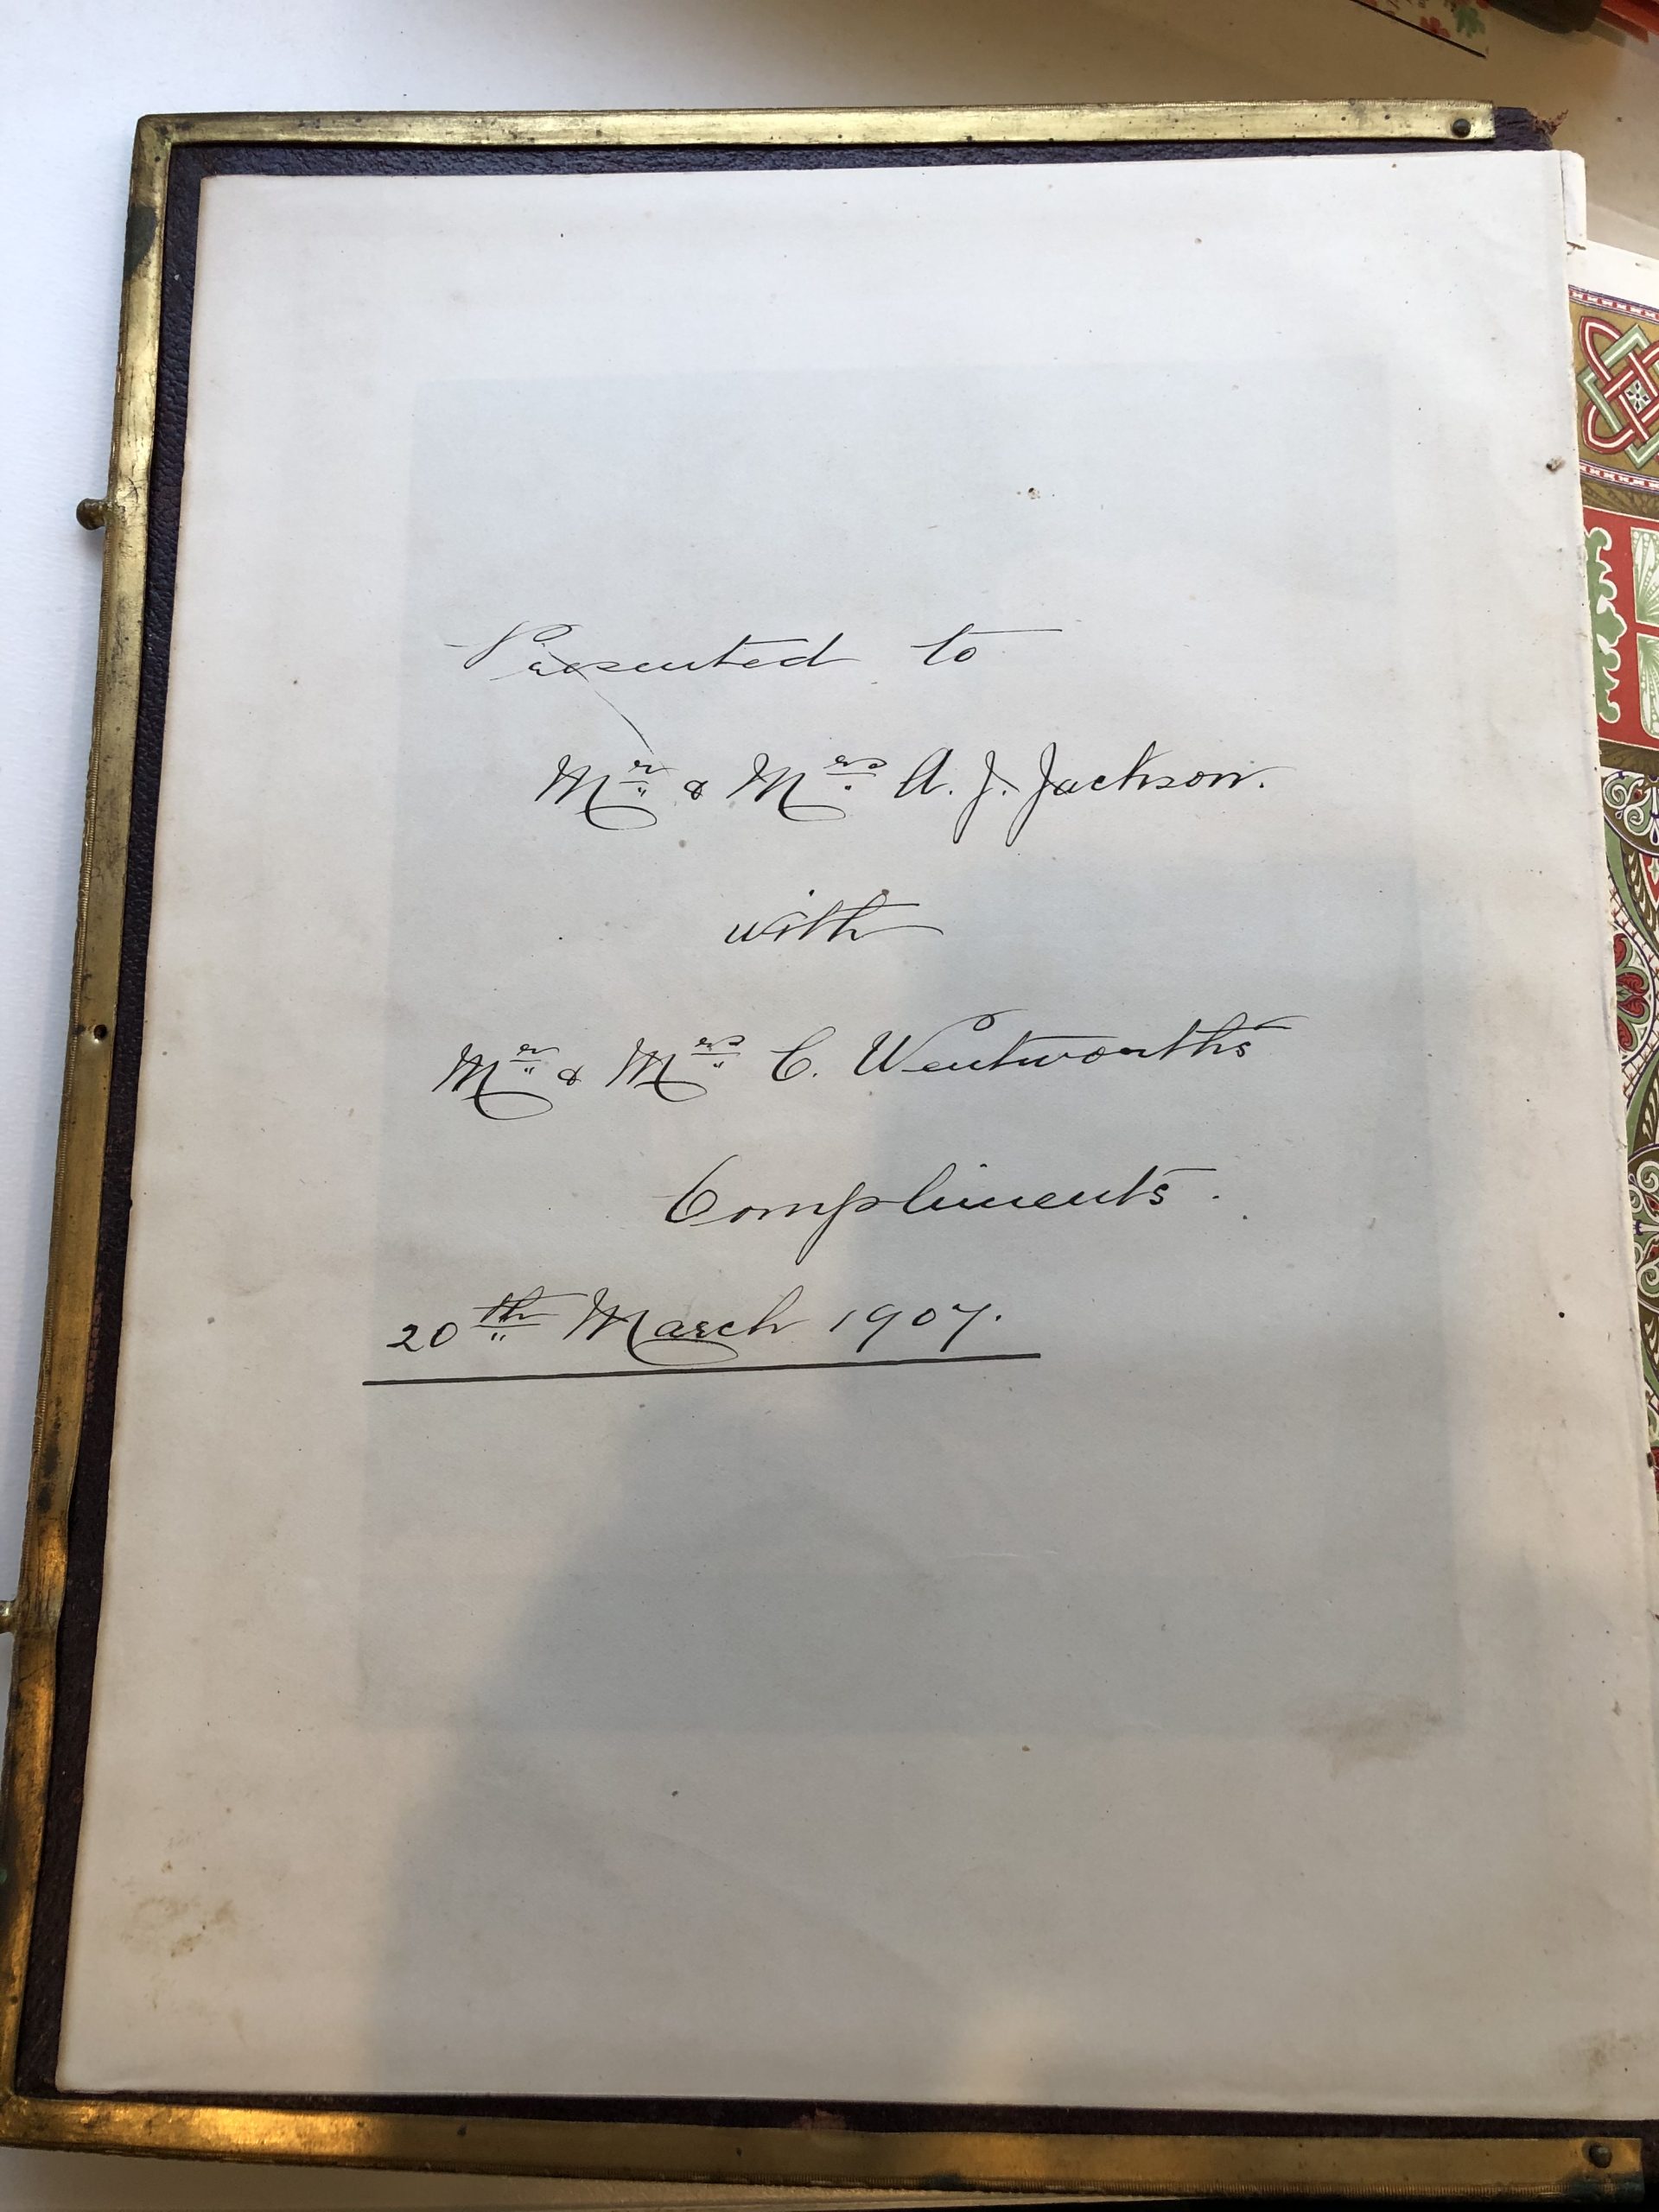 Presented to
Mr. & Mrs. A. J. Jackson.
with
Mr. & Mrs. C. Wentworth's
Compliments.
20th March 1907.